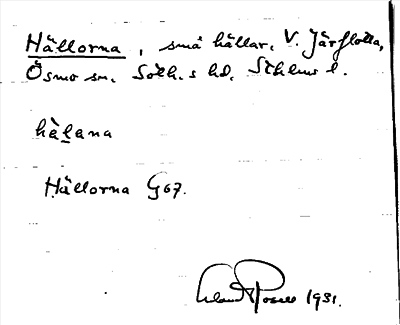 Hällorna, små hällar, V. Järflotta,
Ösmo sn. Soth.s hd. Sthlms l.
hä̀lana
Hällorna G67.
1931.